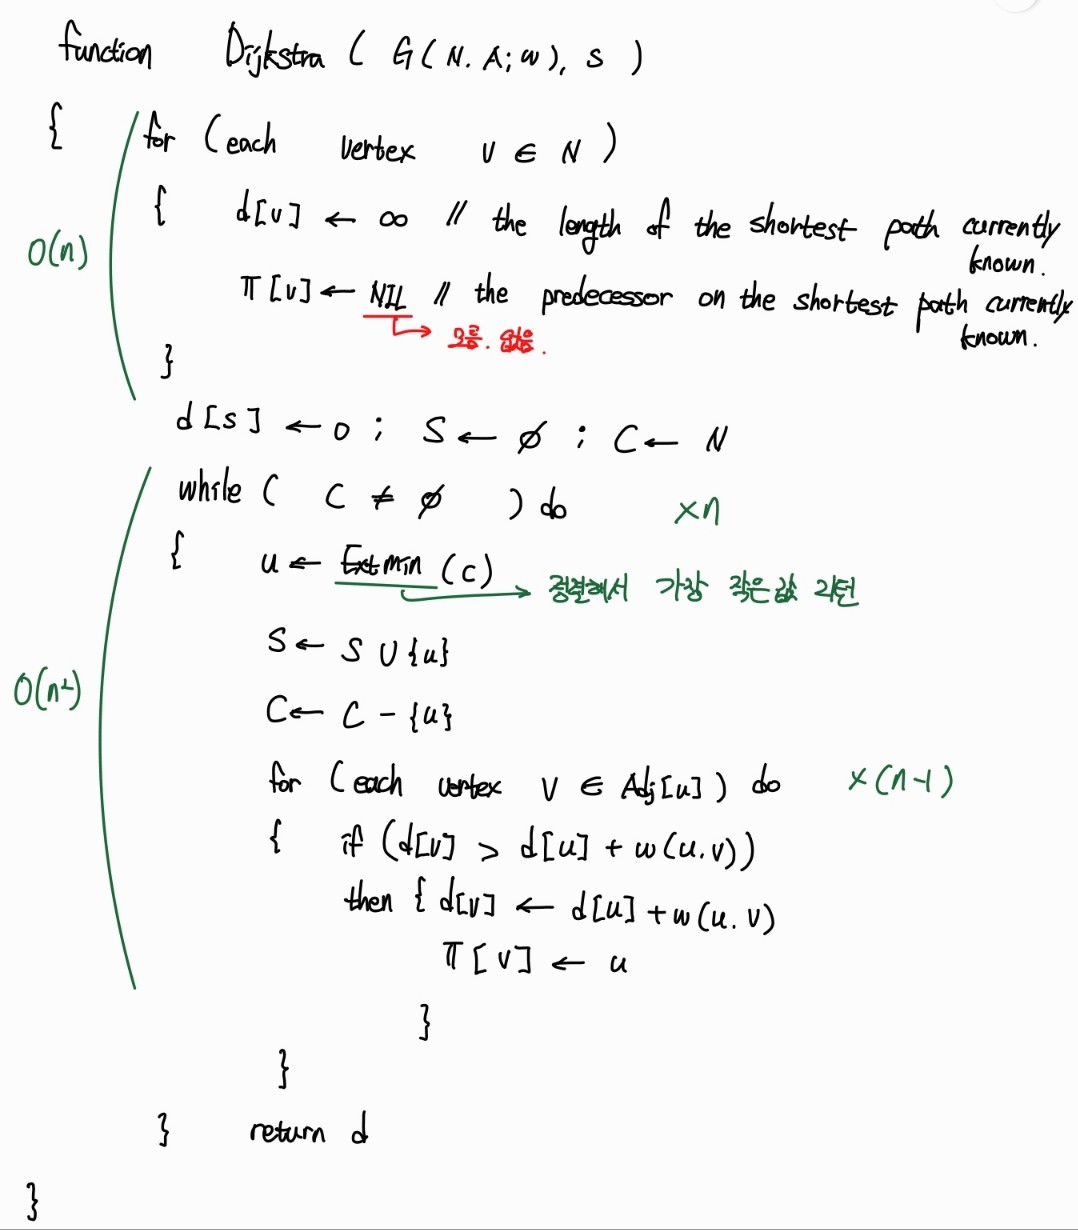 function Dijkstra ( G ( N. A; w ), s )
{ for ( each vertex v ∈ N )
{ d[v] ← ∞ // the length of the shortest path currently known.
O(n)
π[v] ← NIL // the predecessor on the shortest path currently known.
모름. 없음.
}
d[s] ← 0 ; S ← ∅ ; C ← N
while ( C ≠ ∅ ) do ×n
{ u ← Ext min (c) → 정렬해서 가장 작은값 리턴
S ← S ∪ {u}
O(n²)
C ← C - {u}
for ( each vertex v ∈ Adj[u] ) do ×(n-1)
{ if (d[v] > d[u] + w(u.v))
then { d[v] ← d[u] + w(u.v)
π[v] ← u
}
}
} return d
}